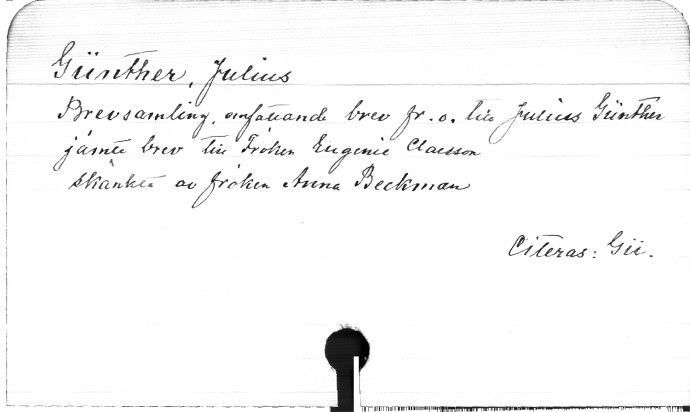 Günther, Julius
Brevsamling, omfattande brev fr. o. till Julius Günther
jämte brev till Fröken Eugenie Claesson
skänkta av fröken Anna Beckman
Citeras: Gü.